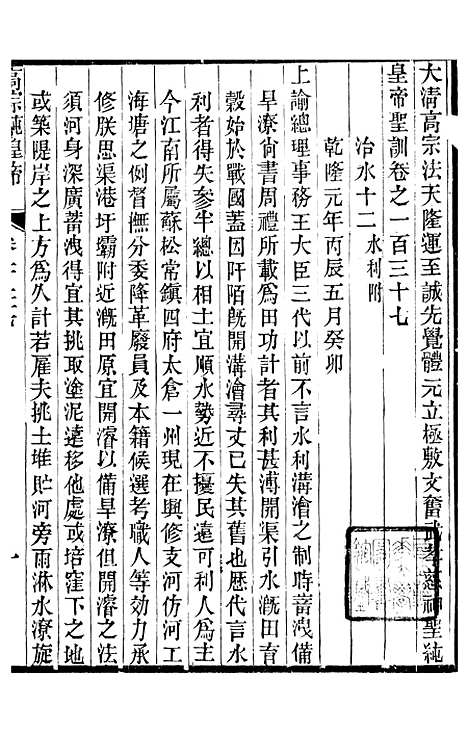 大清高宗法天隆運至誠先覺體元立極敷文奮武孝慈神聖純
皇帝聖訓卷之一百三十七
治水十二 水利附
乾隆元年丙辰五月癸卯
上諭總理事務王大臣三代以前不言水利溝澮之制時蓄洩備
旱潦尙書周禮所載爲田功計者其利甚溥開渠引水漑田育
穀始於戰國蓋因阡陌旣開溝澮尋丈已失其舊也歷代言水
利者得失參半總以相土宜順水勢近不擾民遠可利人爲主
今江南所屬蘇松常鎭四府太倉一州現在興修支河仿河工
海塘之例督撫分委降革廢員及本籍候選考職人等効力承
修朕思渠港圩壩附近漑田原宜開濬以備旱潦但開濬之法
須河身深廣蓄洩得宜其挑取塗泥遠移他處或培窪下之地
或築隄岸之上方爲久計若雇夫挑土堆貯河旁雨淋水潦旋
高宗純皇帝